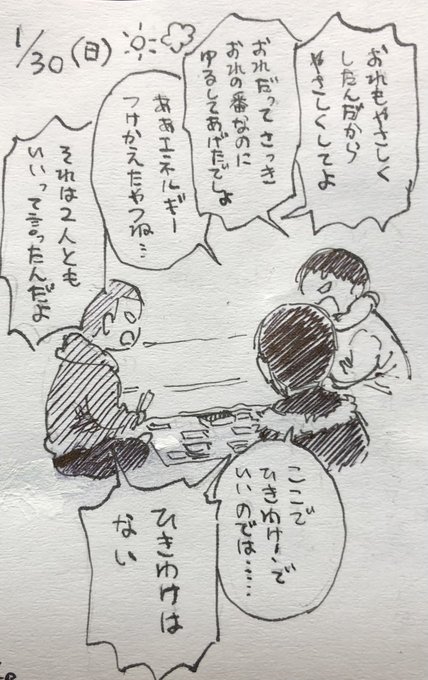 1/30(日)
おれもやさしく
したんだから
やさしくしてよ
おれだってさっき
おれの番なのに
ゆるしてあげたでしょ
ああエネルギー
つけかえたやつね…
それは2人とも
いいって言ったんだよ
ここで
ひきわけ、で
いいのでは……
ひきわけは
ない